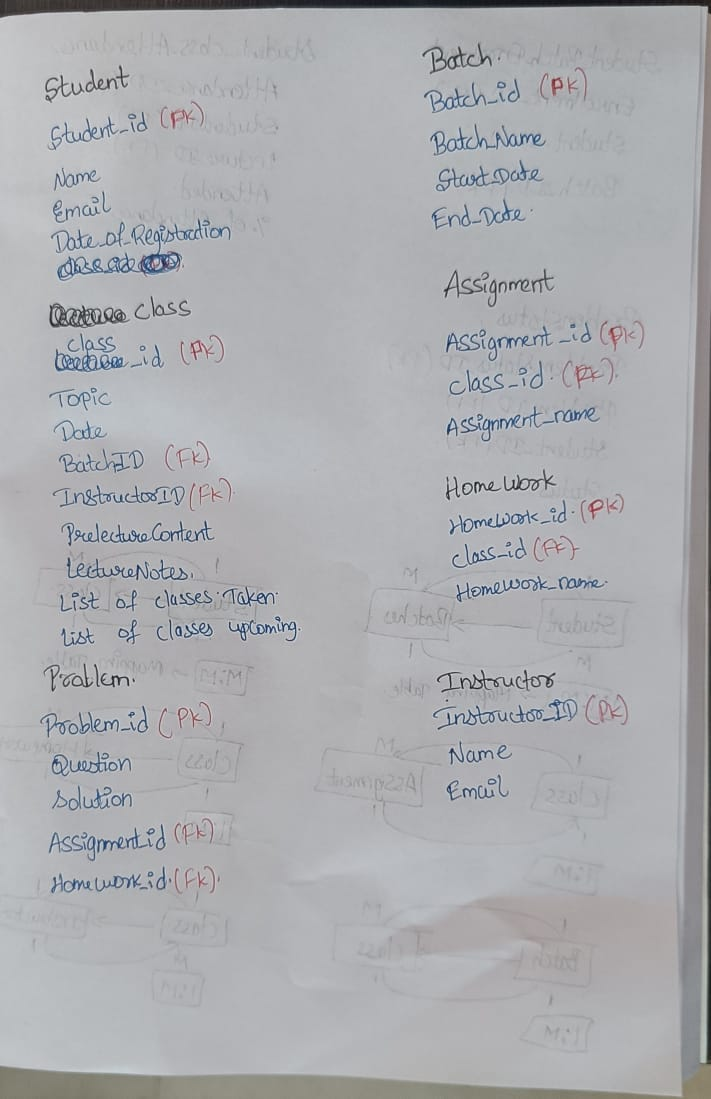 Student
Student_id (PK)
Name
Email
Date_of_Registration
class
class_id (PK)
Topic
Date
BatchID (FK)
InstructorID (FK)
PrelectureContent
LectureNotes.
List of classes Taken
List of classes upcoming.
Problem.
Problem_id (PK)
Question
Solution
Assignment_id (FK)
Homework_id (FK).
Batch.
Batch_id (PK)
Batch_Name
Start_Date
End_Date.
Assignment
Assignment_id (PK)
class_id. (FK).
Assignment_name
Homework
Homework_id. (PK)
class_id (FK)
Homework_name.
Instructor
Instructor_ID (PK)
Name
Email